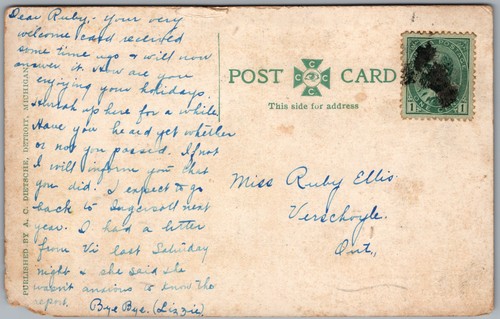 Dear Ruby,- Your very
welcome card received
some time ago & will now
answer it. How are you
enjoying your holidays.
up here for a while
Have you heard yet whether
or not you passed. If not
I will inform you that
you did. I expect to go
back to Ingersoll next
year. I had a letter
from Vi last Saturday
night & she said she
wasn't anxious to know the
report.
Bye Bye. (Lizzie)
PUBLISHED BY A. C. DIETSCHE, DETROIT, MICHIGAN
POST CARD
C C C C
This side for address
1 1
Miss Ruby Ellis
Verschoyle.
Ont.,